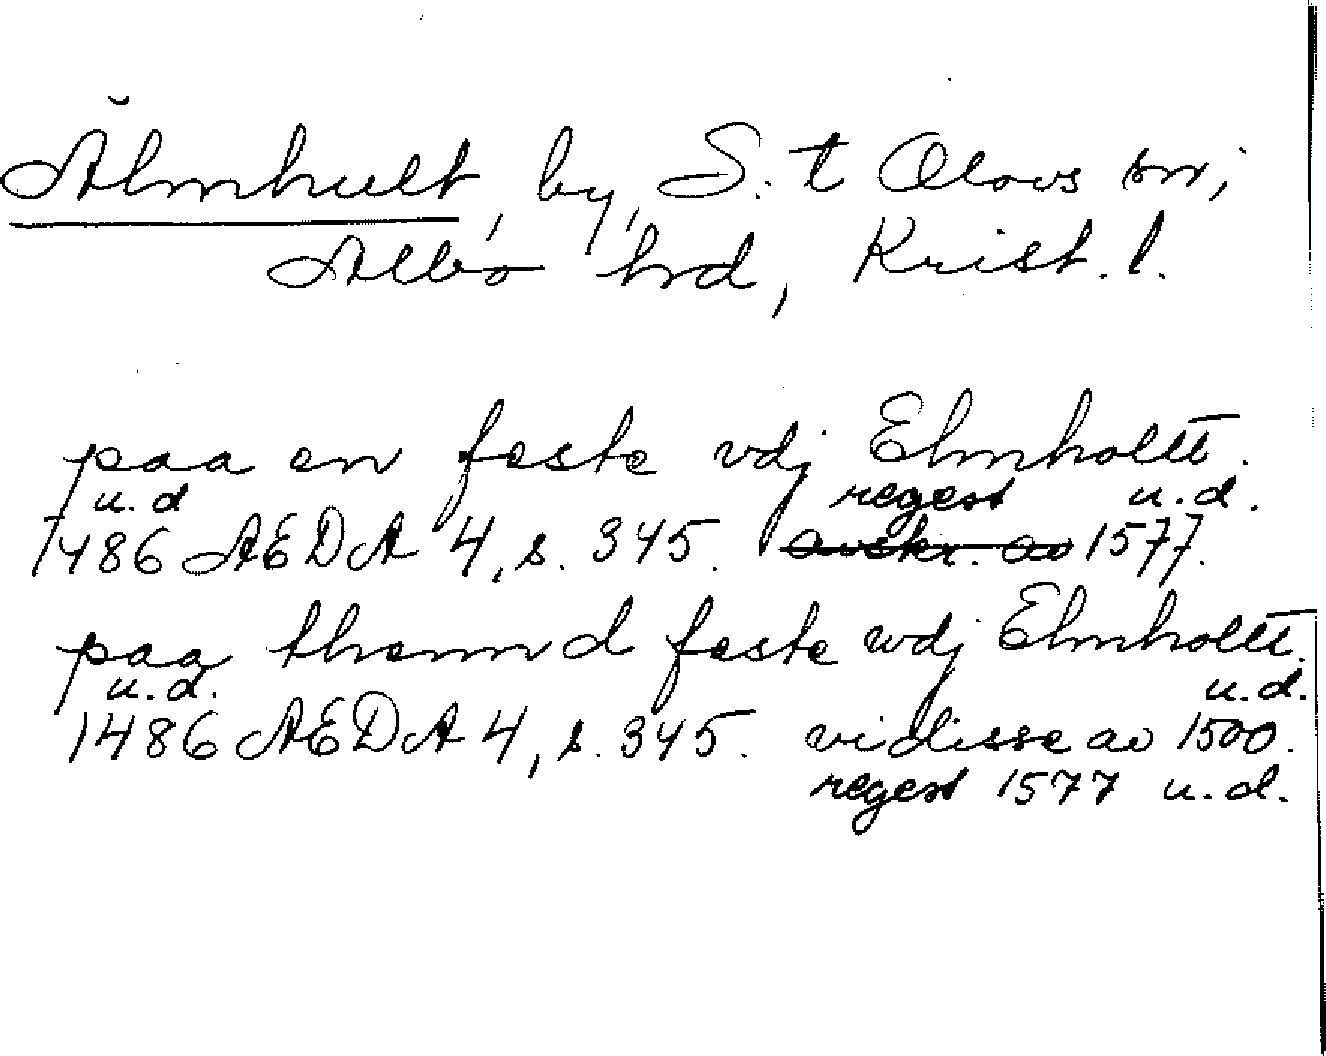 Älmhult, by, S:t Olovs sn,
Albo hd, Krist. l.
paa en feste vdj Elmholtt.
u.d regest u.d.
1486 ÆDA 4, s. 345. avskr. av 1577.
paa themd feste wdj Elmholtt.
u.d. u.d.
1486 ÆDA 4, s. 345. vidisse av 1500.
regest 1577 u.d.